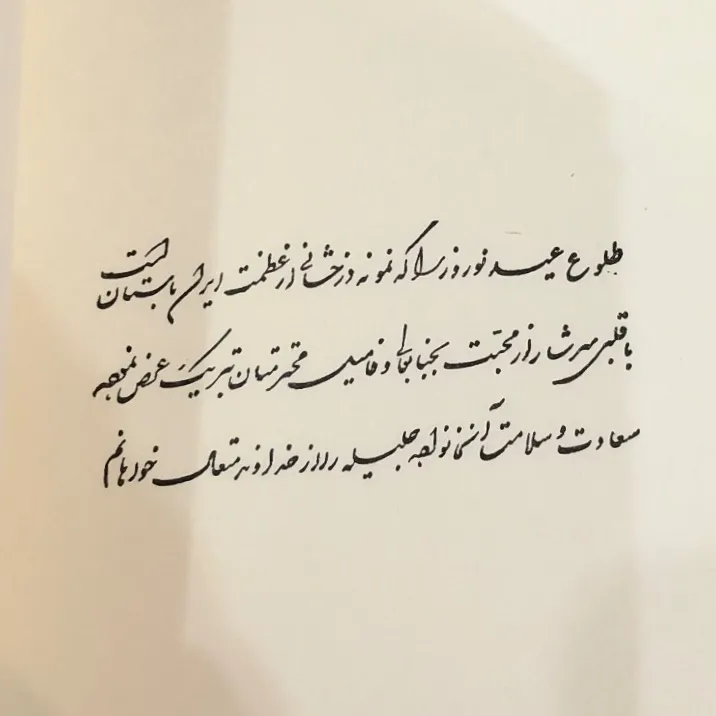 طلوع عید نوروز را که نمونه درخشانی از عظمت ایران باستان است
با قلبی سرشار از محبت بجنابعالی و فامیل محترمتان تبریک عرض نموده
سعادت و سلامت آن خانواده جلیله را از خداوند متعال خواهانم